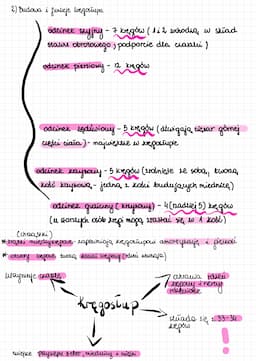 2) Budowa i funkcje kręgosłupa
odcinek szyjny - 7 kręgów (1 i 2 wchodzą w skład
stawu obrotowego; podporcie dla czaszki)
odcinek piersiowy - 12 kręgów
odcinek lędźwiowy - 5 kręgów (dźwigają ciężar górnej
części ciała) - największe w kręgosłupie
odcinek krzyżowy - 5 kręgów (zrośnięte ze sobą, tworzą
kość krzyżową - jedną z kości budujących miednicę)
odcinek guziczny (krzyżowy) - 4 (rzadziej 5) kręgów
(u starszych osób kręgi mogą zrastać się w 1 kość)
(chrząstki)
* krążki międzykręgowe - zapewniają kręgosłupowi
* otwory kręgowe tworzą kanał kręgowy
utrzymuje czaszkę
ochrania rdzeń
kręgowy i nerwy
kręgosłup
składa się z 33-34
kręgów
miejsce